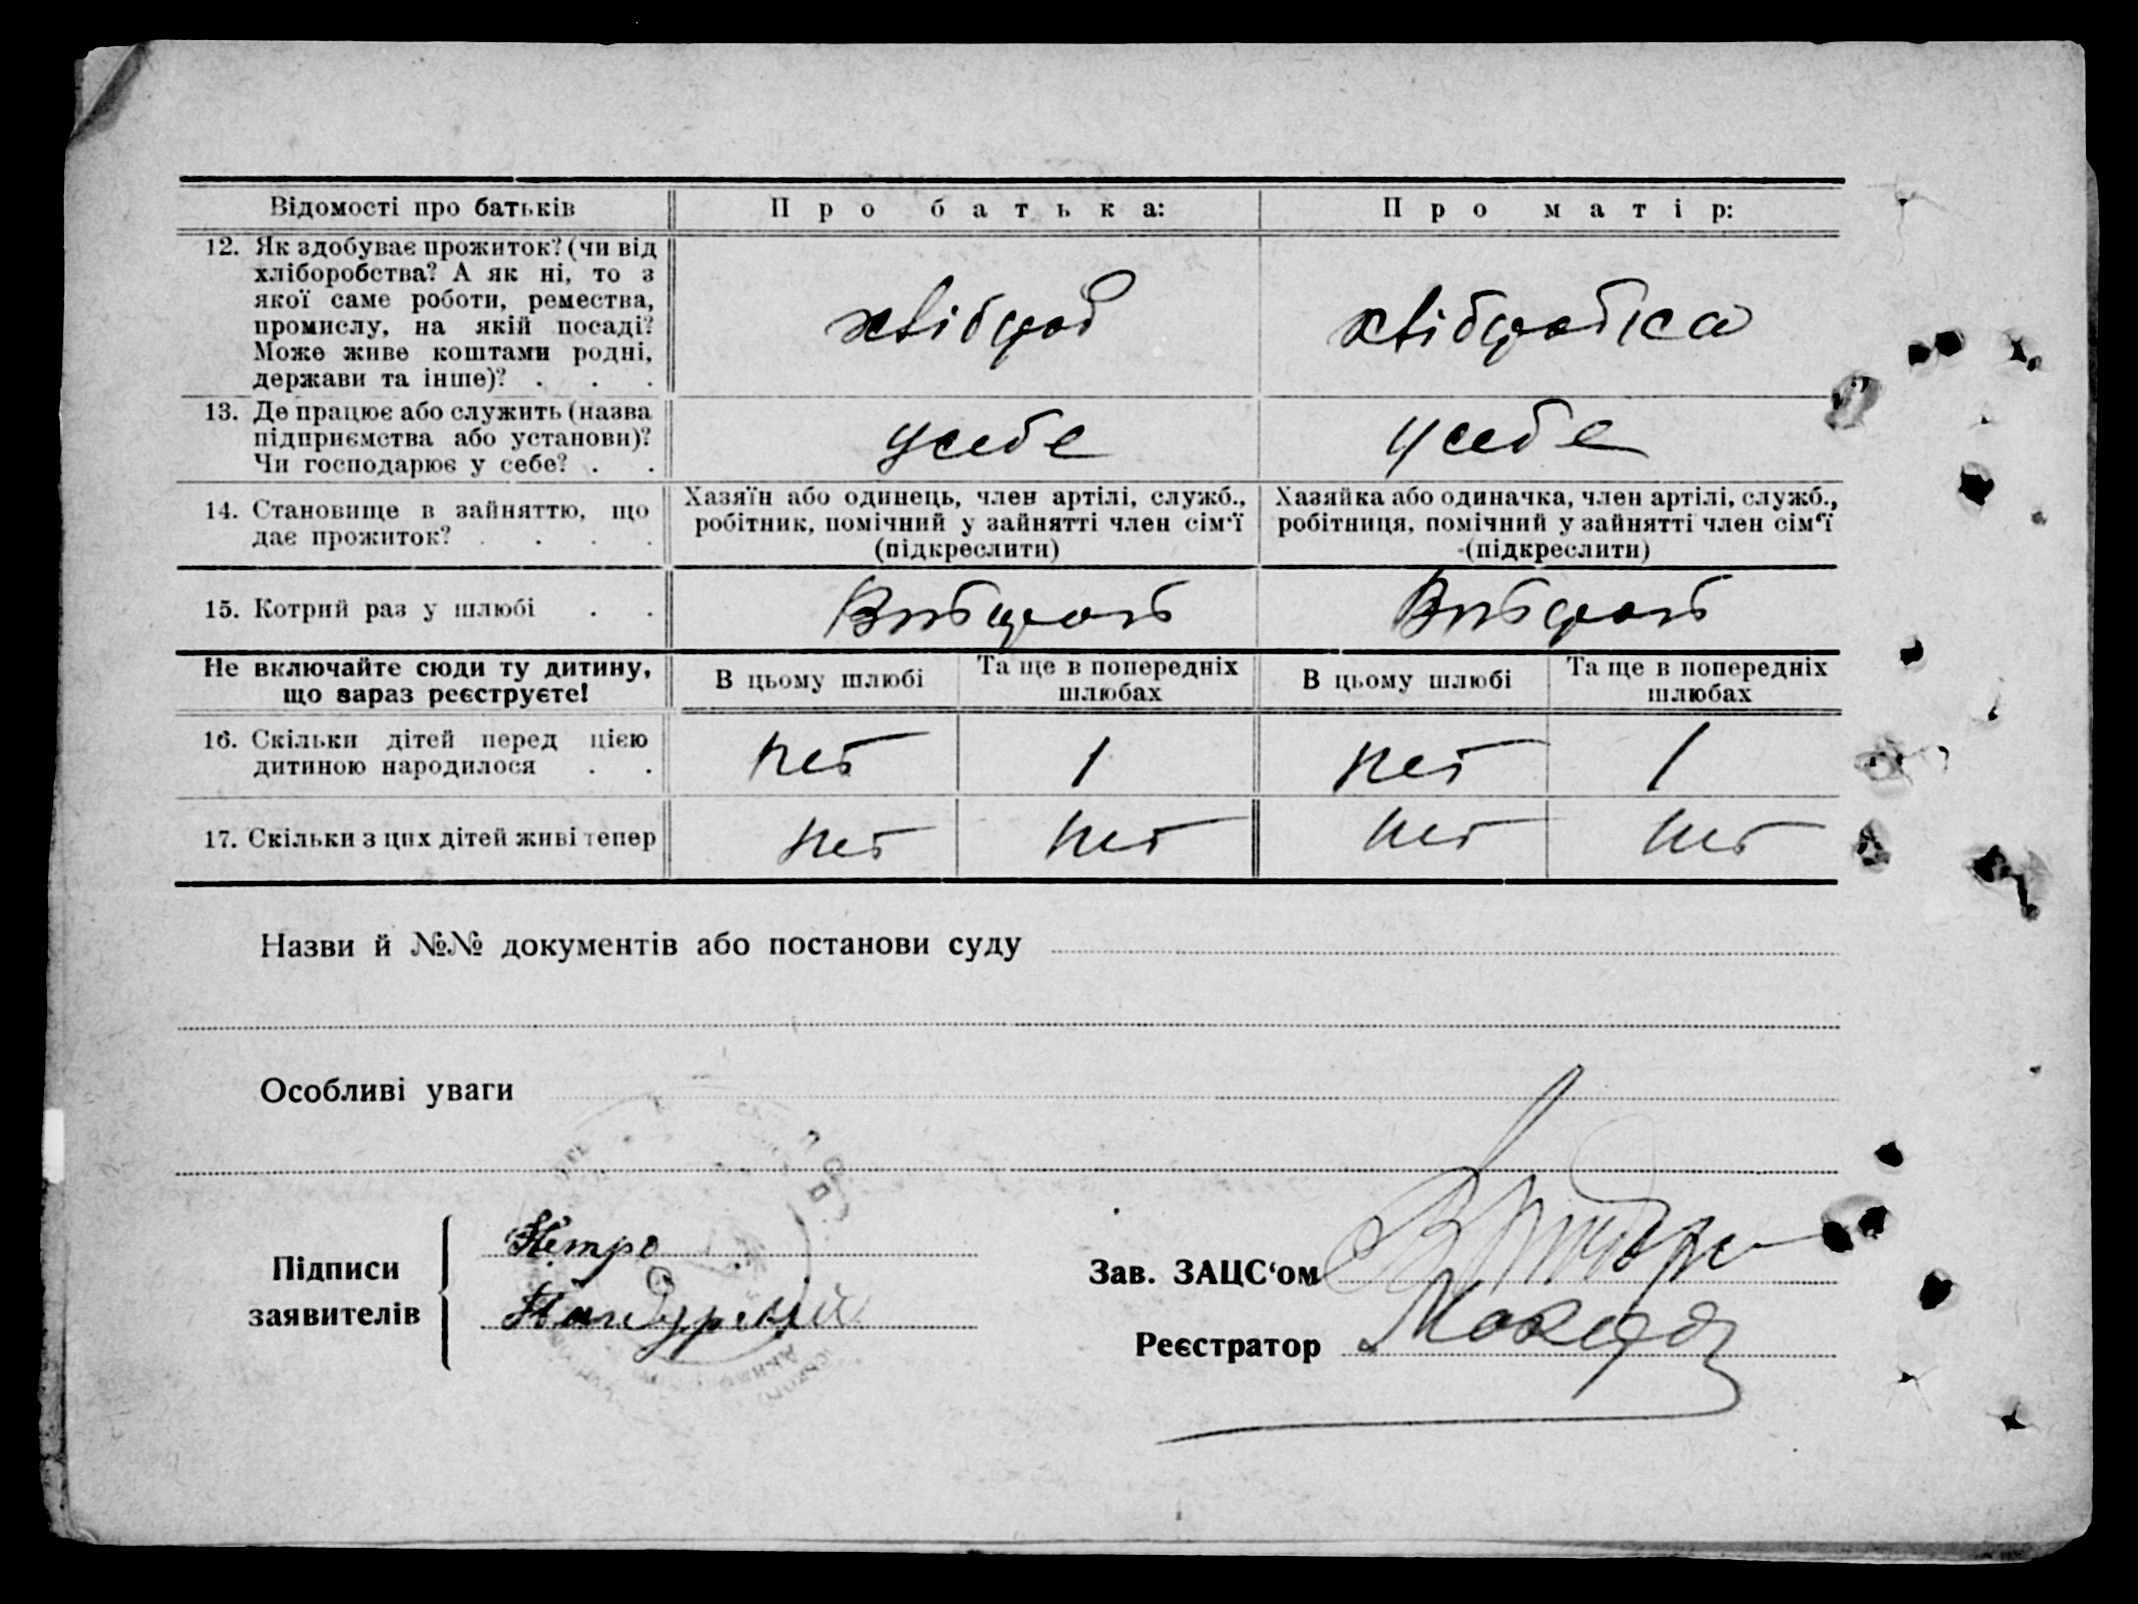 Відомості про батьків Про батька: Про матір:
12. Як здобуває прожиток? (чи від
хліборобства? А як ні, то з
якої саме роботи, ремества,
промислу, на якій посаді?
Може живе коштами родні,
держави та інше)? . . .
хлібороб хліборобка
13. Де працює або служить (назва
підприємства або установи)?
Чи господарює у себе? . .
у себе у себе
14. Становище в зайняттю, що
дає прожиток? . . . .
Хазяїн або одинець, член артілі, служб.,
робітник, помічний у зайнятті член сім'ї
(підкреслити)
Хазяйка або одиначка, член артілі, служб.,
робітниця, помічний у зайнятті член сім'ї
(підкреслити)
15. Котрий раз у шлюбі . .
Второй Второй
Не включайте сюди ту дитину,
що зараз реєструєте!
В цьому шлюбі Та ще в попередніх
шлюбах
В цьому шлюбі Та ще в попередніх
шлюбах
16. Скільки дітей перед цією
дитиною народилося . .
нет 1 нет 1
17. Скільки з цих дітей живі тепер нет нет нет нет
Назви й №№ документів або постанови суду
Особливі уваги
Підписи
заявителів
Петро
Зав. ЗАЦС'ом
Реєстратор